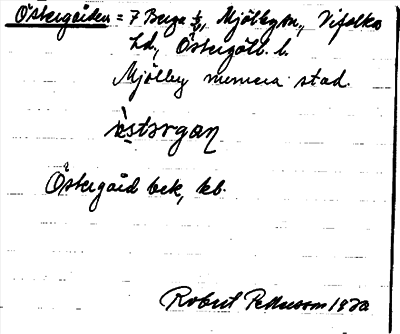 Östergården = 7 Berga ½, Mjölby sn., Vifolka
hd, Östergötl. l.
Mjölby numera stad.
östərgaɳ
Östergård bek, kb.
Robert Pettersson 1920